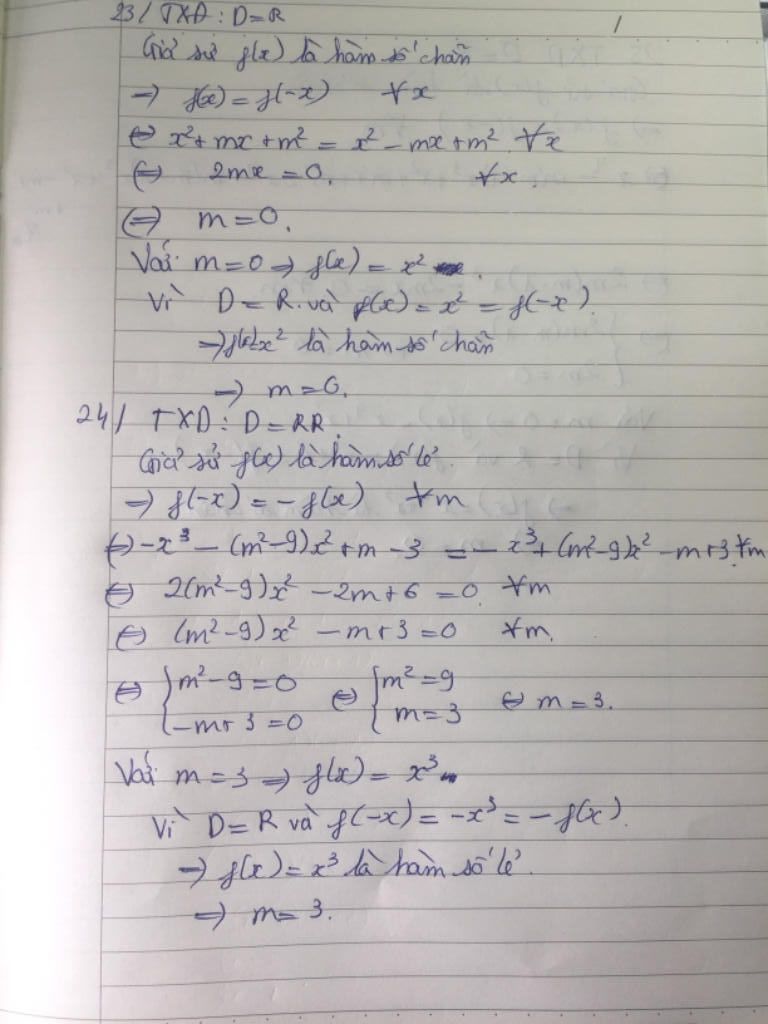 23/ TXĐ: D=R
Giả sử f(x) là hàm số chẵn
=> f(x) = f(-x) ∀x
<=> x²+mx+m² = x²-mx+m² ∀x
<=> 2mx = 0. ∀x
<=> m=0.
Với m=0 => f(x) = x²
Vì D=R và f(x) = x² = f(-x)
=> f(x)=x² là hàm số chẵn
=> m=0.
24/ TXD: D=RR
Giả sử f(x) là hàm số lẻ.
=> f(-x) = -f(x) ∀m
<=> -x³ - (m²-9)x² + m - 3 = -x³ + (m²-9)x² - m + 3 ∀m
<=> 2(m²-9)x² - 2m + 6 = 0 ∀m
<=> (m²-9)x² - m + 3 = 0 ∀m.
<=> { m²-9 = 0 <=> { m² = 9 <=> m = 3.
-m+3 = 0 m = 3
Với m=3 => f(x) = x³
Vì D=R và f(-x) = -x³ = -f(x).
=> f(x) = x³ là hàm số lẻ.
=> m=3.